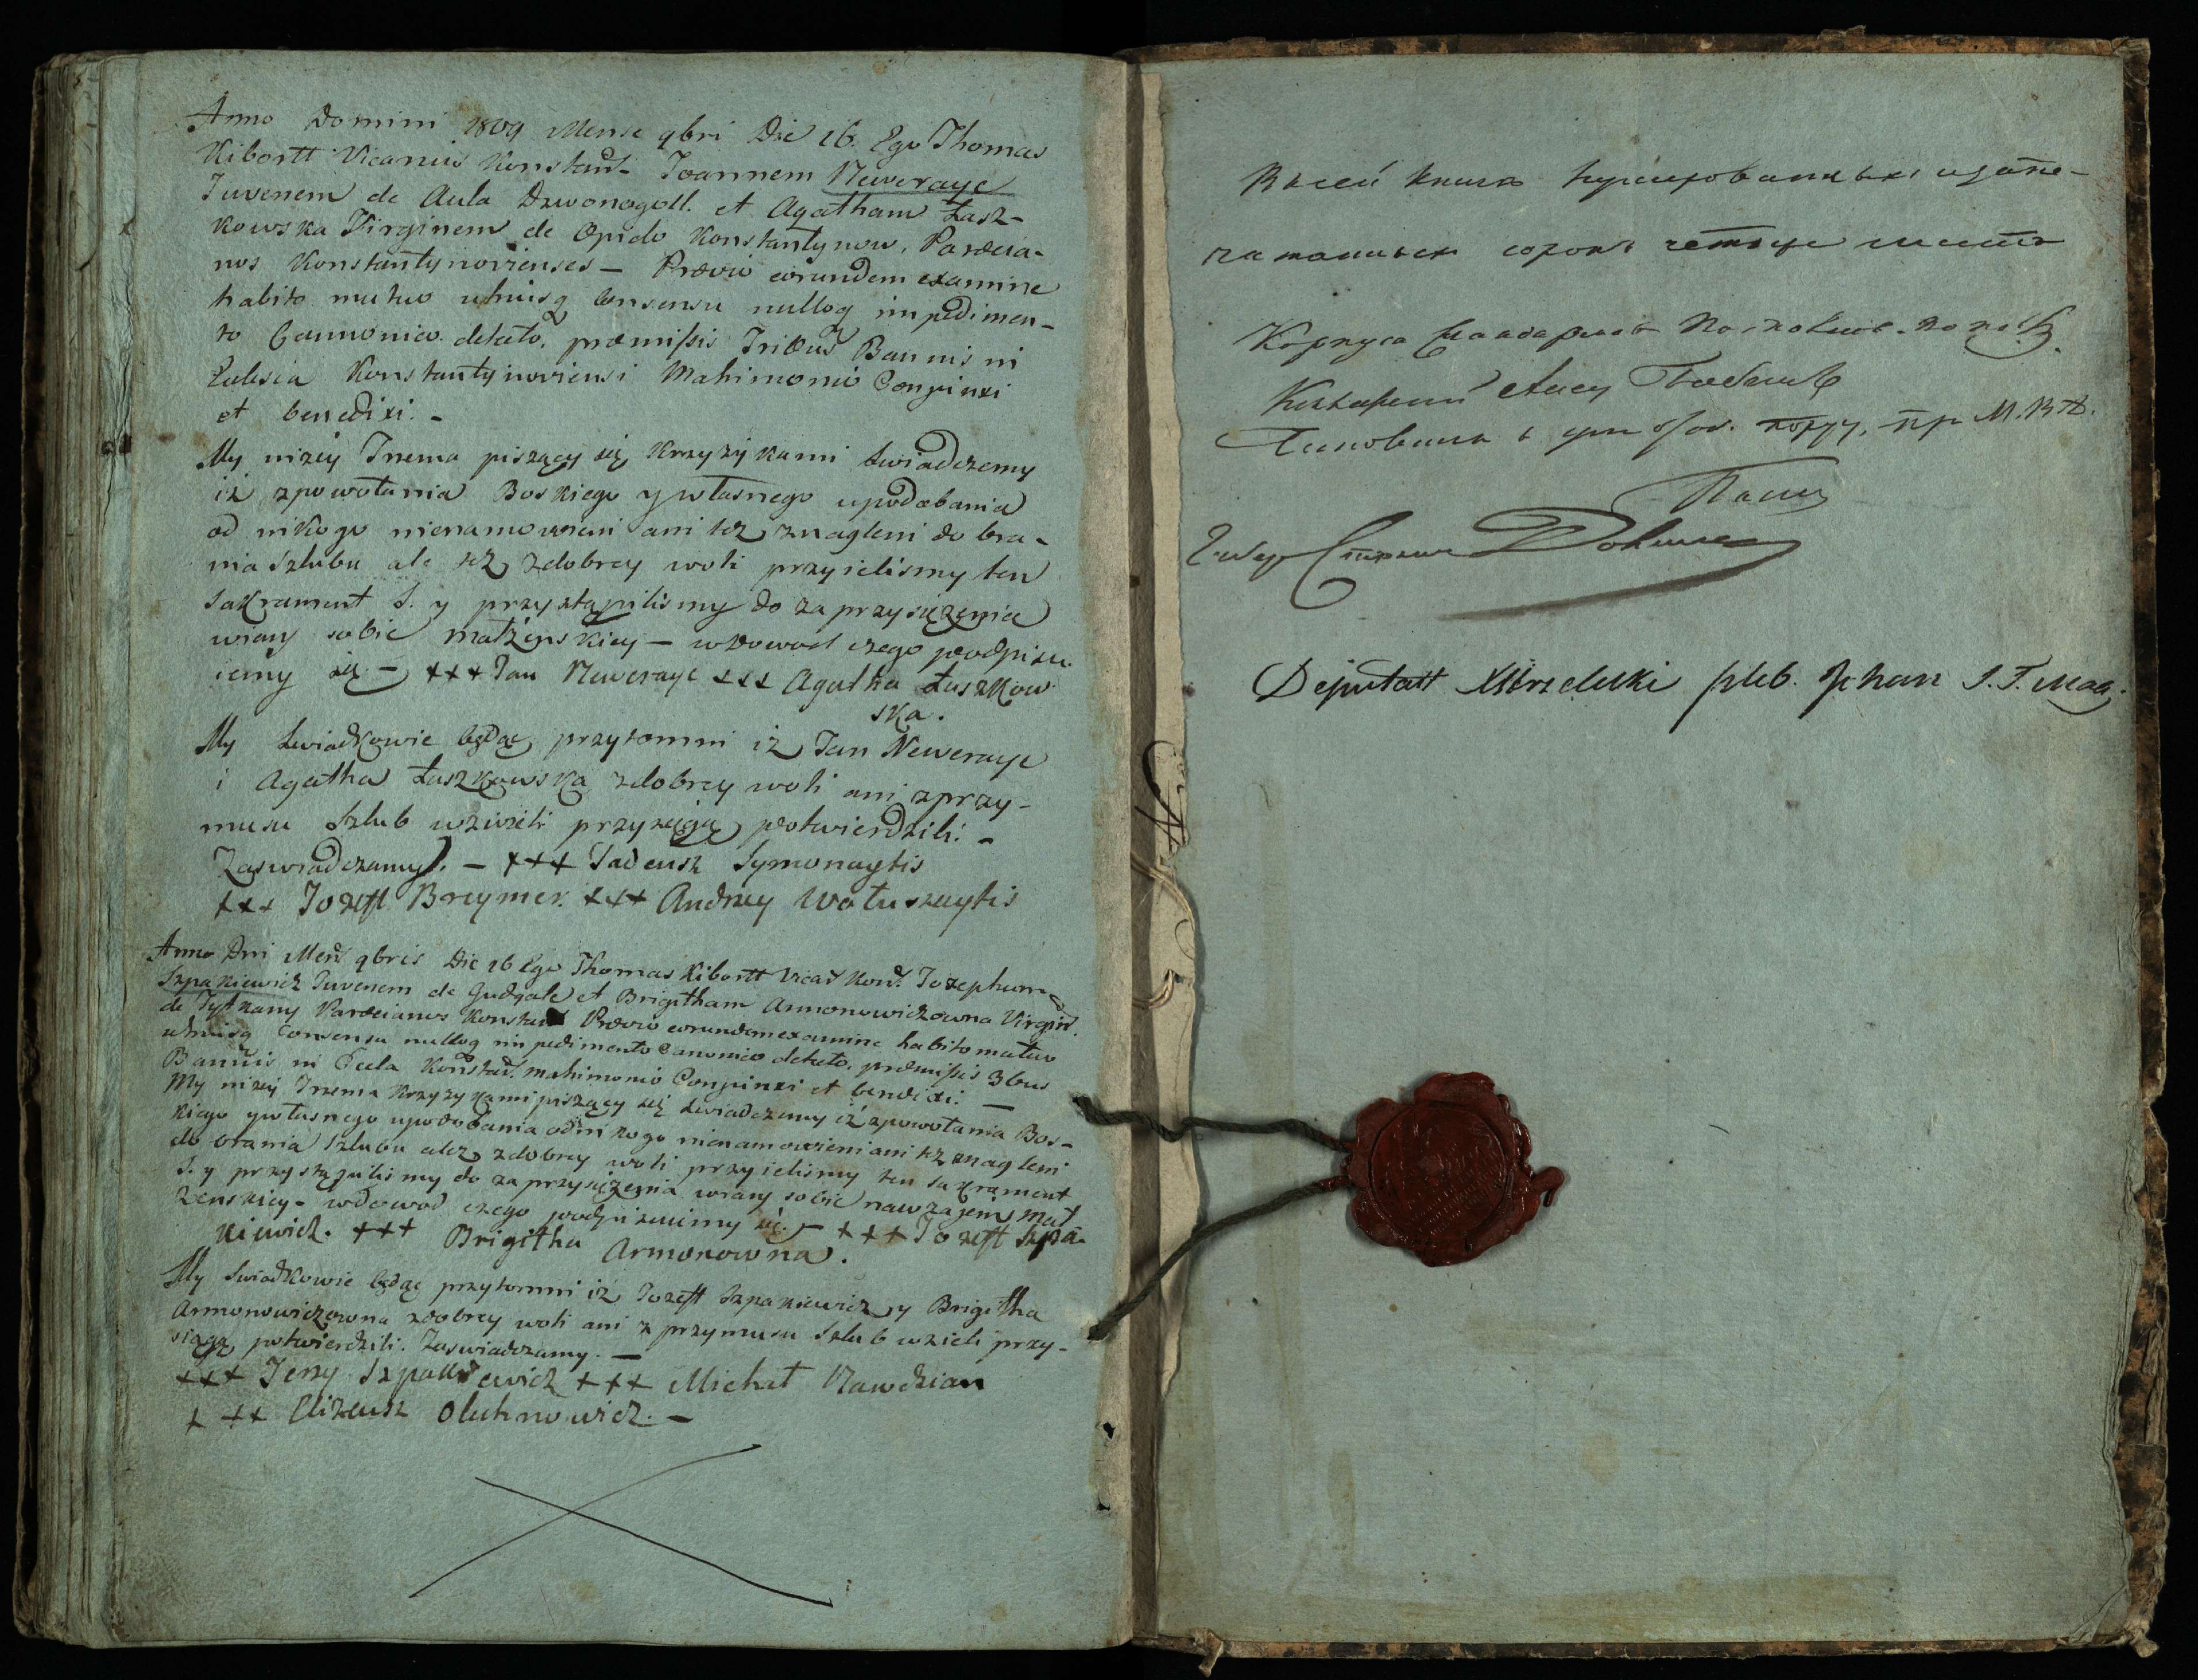 Anno Domini 1809 Mense 9bri Die 16. Ego Thomas
Kibortt Vicarius Konstant- Joannem Neweraye
Juvenem de Aula Dzwonogoll. et Agatham Łasz-
kowska Virginem de Opido Konstantynow, Paroecia-
nos Konstantynovienses - Praevio eorundem examine
habito mutuo utriusq consensu nulloq impedimen-
to Cannonico detecto, praemissis Tribus Bannis in
Eclesia Konstantynoviensi Matrimonio Conjunxi
et benedixi. -
My niżey Imema piszący się krzyżykami świadczemy
iż zpowołania Boskiego y własnego upodobania
od nikogo nienamowieni ani też znagleni do bra-
nia szlubu ale też zdobrey woli przyieliśmy ten
Sakrament S. y przystąpiliśmy do zaprzysiężenia
wiary sobie małżenskiey - wdowod czego podpisu-
iemy się - +++ Jan Neweraye +++ Agatha Łaszkow
ska.
My świadkowie będąc przytomni iż Jan Neweraye
i Agatha Łaszkowska zdobrey woli ani zprzy-
musu szlub wzieli przysięgą potwierdzili. -
Zaswiadczamy. - +++ Tadeusz Symonaytis
+++ Jozeff Breymer. +++ Andrzey Wołuszaytis
Anno Dni Men 9bris Die 16 Ego Thomas Kibortt Vicar Kons. Josephum
Szpakiewicz Juvenem de Gudgale et Brigitham Armonowiczowna Virgin.
de Tyszkany Paroecianos Konstan Praevio eorundem examine habito mutuo
utriusq Consensu nulloq impedimento Canonico detecto, praemissis 3bus
Bannis in Eccla Konstan. matrimonio Conjunxi et benedixi. -
My niżey Imema krzyżykami piszący się świadczemy iż zpowołania Bos-
kiego y własnego upodobania odnikogo nienamowieni ani też znagleni
do brania szlubu ale z zdobrey woli przyieliśmy ten sakrament
S. y przystąpiliśmy do zaprzysiężenia wiary sobie nawzajem mał
żenskiey - wdowod czego podpisuiemy się. - +++ Jozeff Szpa-
kiewicz. +++ Brigitha Armonowna.
My świadkowie będąc przytomni iż Jozeff Szpakiewicz y Brigitha
Armonowiczowna zdobrey woli ani z przymusu szlub wzieli przy-
sięgą potwierdzili. Zaswiadczamy. -
+++ Jerzy Szpakiewicz +++ Michał Nawdzian
+ ++ Elizeusz Olechnowicz. -
Въ сей книге нумерованныхъ и запе-
чатанныхъ сорокъ четыре листа
Deputatt Strzelecki pleb. S. T. Mag.